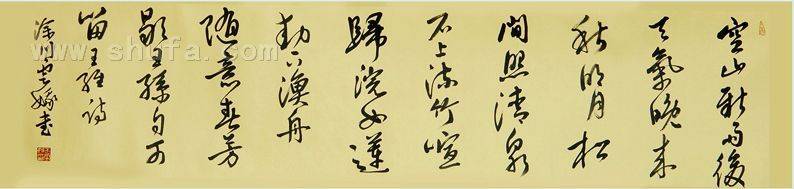 空山新雨後
天氣晚來
秋明月松
間照清泉
石上流竹喧
歸浣女蓮
動下漁舟
隨意春芳
歇王孫自可
留王維詩
書
www.shufa.com